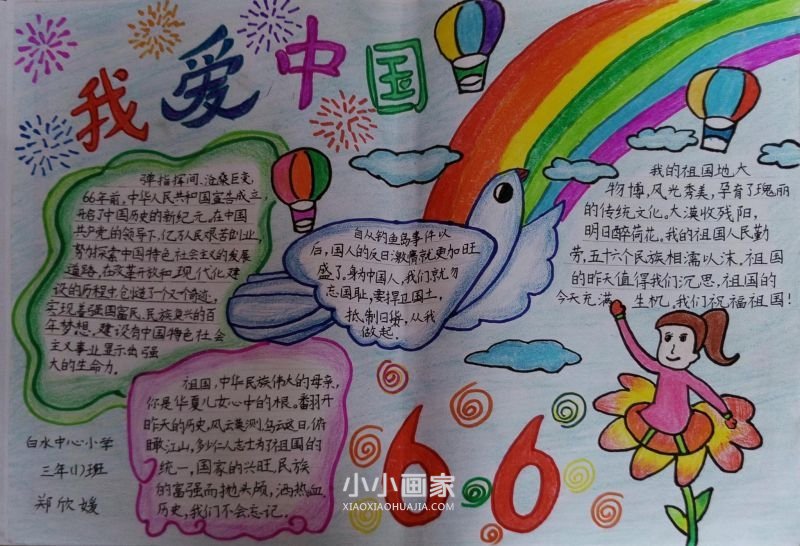 我爱中国
弹指挥间、沧桑巨变,
66年前,中华人民共和国宣告成立,
开启了中国历史的新纪元,在中国
共产党的领导下,亿万人民艰苦创业,
努力探索中国特色社会主义的发展
道路,在改革开放和现代化建
设的历程中创造了一个又一个奇迹,
实现着强国富民、民族复兴的百
年梦想,建设有中国特色社会
主义事业显示出强
大的生命力.
自从钓鱼岛事件以
后,国人的反日激情就更加旺
盛了,身为中国人,我们就勿
忘国耻,要捍卫国土,
抵制日货,从我
做起.
我的祖国地大
物博,风光秀美,孕育了瑰丽
的传统文化。大漠收残阳,
明日醉荷花。我的祖国人民勤
劳,五十六个民族相濡以沫,祖国
的昨天值得我们沉思,祖国的
今天充满生机,我们祝福祖国!
祖国,中华民族伟大的母亲,
你是华夏儿女心中的根。翻开
昨天的历史,风云莫测,乌云这日,俯
瞰江山,多少仁人志士为了祖国的
统一,国家的兴旺,民族
的富强而抛头颅,洒热血
历史,我们不会忘记.
白水中心小学
三年(1)班
郑欣媛
66
小小画家
XIAOXIAOHUAJIA.COM